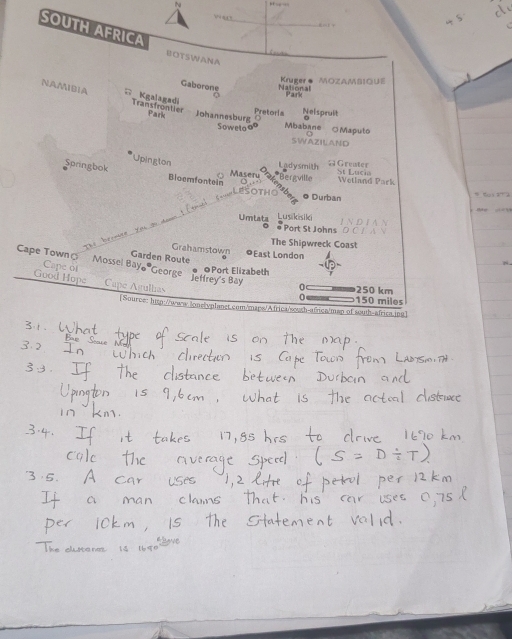 SOUTH AFRICA
N
BOTSWANA
NAMIBIA
Gaborone
Kruger National Park
MOZAMBIQUE
Kgalagadi Transfrontier Park
Johannesburg
Pretoria
Nelspruit
Soweto
Mbabane
Maputo
SWAZILAND
Springbok
Upington
Bloemfontein
Maseru
Ladysmith
Bergville
Greater St Lucia Wetland Park
LESOTHO
Drakensberg
Durban
Umtata
Lusikisiki
Port St Johns
INDIAN OCEAN
The Shipwreck Coast
Grahamstown
East London
Cape Town
Garden Route
Mossel Bay
George
Port Elizabeth
Jeffrey's Bay
Cape of Good Hope
Cape Agulhas
UP
0 250 km
0 150 miles
[Source: http://www.lonelyplanet.com/maps/Africa/south-africa/map of south-africa.jpg]
3.1. What type of scale is on the map.
3.2. In which direction is Cape Town from LADYSMITH.
3.3. If the distance between Durban and
Upington is 9,6cm, what is the actual distance
in km.
3.4. If it takes 17,85 hrs to drive 1690 km
calc the average speed (S = D ÷ T)
3.5. A car uses 1,2 litre of petrol per 12km
If a man claims that his car uses 0,75 l
per 10km, is the statement valid.
The distance is 1690